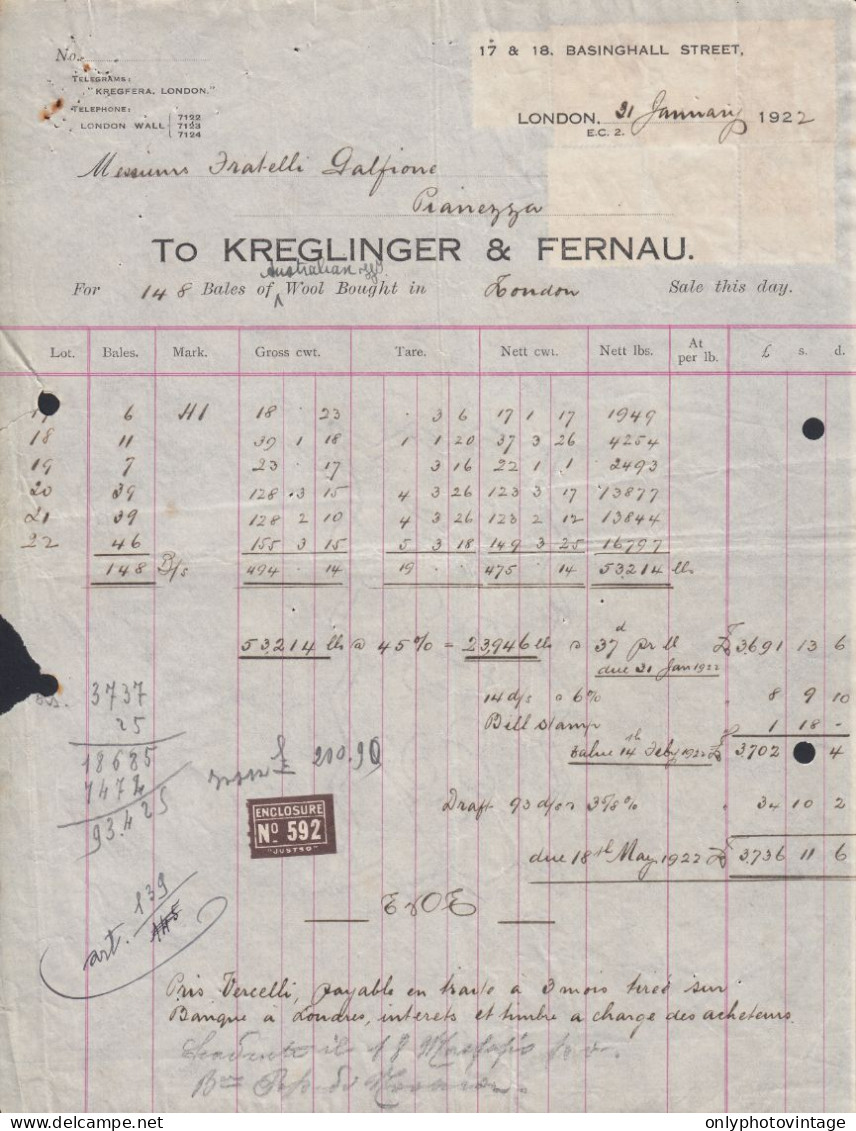 17 & 18, BASINGHALL STREET,
No.
TELEGRAMS:
"KREGFERA, LONDON."
TELEPHONE:
LONDON WALL 7122 7123 7124
LONDON, 31 January 1922
E.C. 2.
Messieurs Fratelli Galfione
Pianezza
TO KREGLINGER & FERNAU.
Australian
For 148 Bales of Wool Bought in London Sale this day.
Lot. Bales. Mark. Gross cwt. Tare. Nett cwt. Nett lbs. At per lb. £ s. d.
6 HI 18 . 23 . 3 6 17 1 17 1949
18 11 39 1 18 1 1 20 37 3 26 4254
19 7 23 . 17 3 16 22 1 1 2493
20 39 128 . 3 15 4 3 26 123 3 17 13877
21 39 128 2 10 4 3 26 123 2 12 13844
22 46 155 3 15 5 3 18 149 3 25 16797
148 B/s 494 . 14 19 . 475 . 14 53214 lbs
53,214 lbs @ 45% = 23,946 lbs @ 37d pr lb £ 3,691 13 6
due 31 Jan 1922
14 d/s @ 6% " 8 9 10
Bill stamp 1 18 -
Value 14th Feby 1922 £ 3,702 4
Draft 93 d/s @ 3 5/8 % " 34 10 2
due 18th May 1922 £ 3,736 11 6
3737
25
18685
7474
93.425
£ 200.90
ENCLOSURE
No 592
"JUSTSO"
E & O E
art. 139
145
Pris Vercelli, payable en traite à 3 mois tirée sur
Banque à Londres, intérets et timbre à charge des acheteurs.
il 18
onlyphotovintage.com